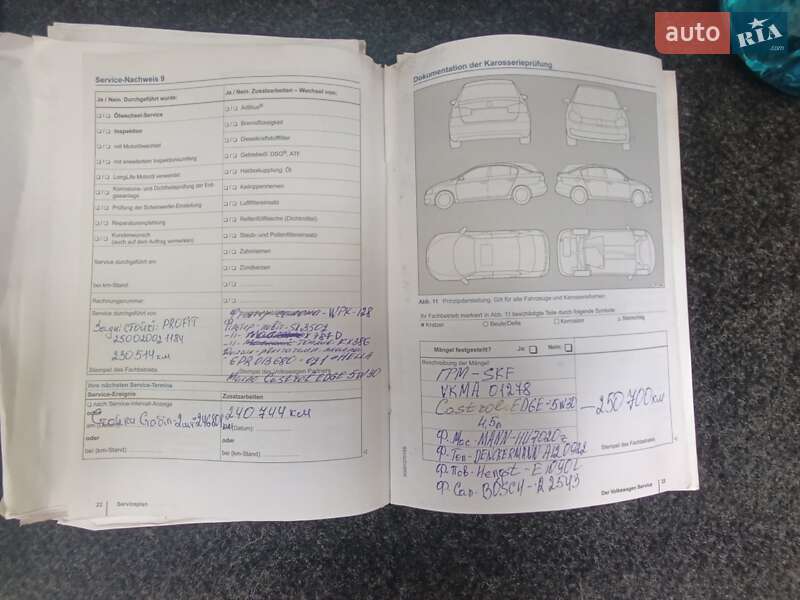 auto RIA
Service-Nachweis 9
Ja / Nein: Durchgeführt wurde:
Ölwechsel-Service
Inspektion
mit Motorölwechsel
mit erweitertem Inspektionsumfang
LongLife Motoröl verwendet
Korrosions- und Dichtheitsprüfung der Erdgasanlage
Prüfung der Scheinwerfer-Einstellung
Reparaturempfehlung
Kundenwunsch
(auch auf dem Auftrag vermerken)
Service durchgeführt am:
bei km-Stand:
Rechnungsnummer:
Service durchgeführt von:
PROFIT
230 514 км
Stempel des Fachbetriebs
Ja / Nein: Zusatzarbeiten – Wechsel von:
AdBlue®
Bremsflüssigkeit
Dieselkraftstofffilter
Getriebeöl: DSG®, ATF
Haldexkupplung: Öl
Keilrippenriemen
Luftfiltereinsatz
Reifenfüllflasche (Dichtmittel)
Staub- und Pollenfiltereinsatz
Zahnriemen
Zündkerzen
bei km-Stand:
WPK-128
HELLA
Масло Castrol EDGE 5W30
Ihre nächsten Service-Termine
Service-Ereignis
Zusatzarbeiten
nach Service-Interval-Anzeige
oder
240 744 км
am (Datum):
oder
oder
bei (km-Stand)
bei (km-Stand)
22 Serviceplan
Dokumentation der Karosserieprüfung
Abb. 11 Prinzipdarstellung. Gilt für alle Fahrzeuge und Karosserieformen.
Ihr Fachbetrieb markiert in Abb. 11 beschädigte Teile durch folgende Symbole:
Kratzer
Beule/Delle
Korrosion
Steinschlag
Mängel festgestellt?
Ja
Nein
Beschreibung der Mängel:
ГРМ - SKF
VKMA 01278
Castrol EDGE-5W30
— 250 700 км
4,5л
Ф. Мас. MANN-HU7020z
Ф. Топ - DENCKERMANN A120922
Ф. Пов - Hengst - E1090L
Ф. Сал. BOSCH - R2543
Stempel des Fachbetriebs
Der Volkswagen Service
23